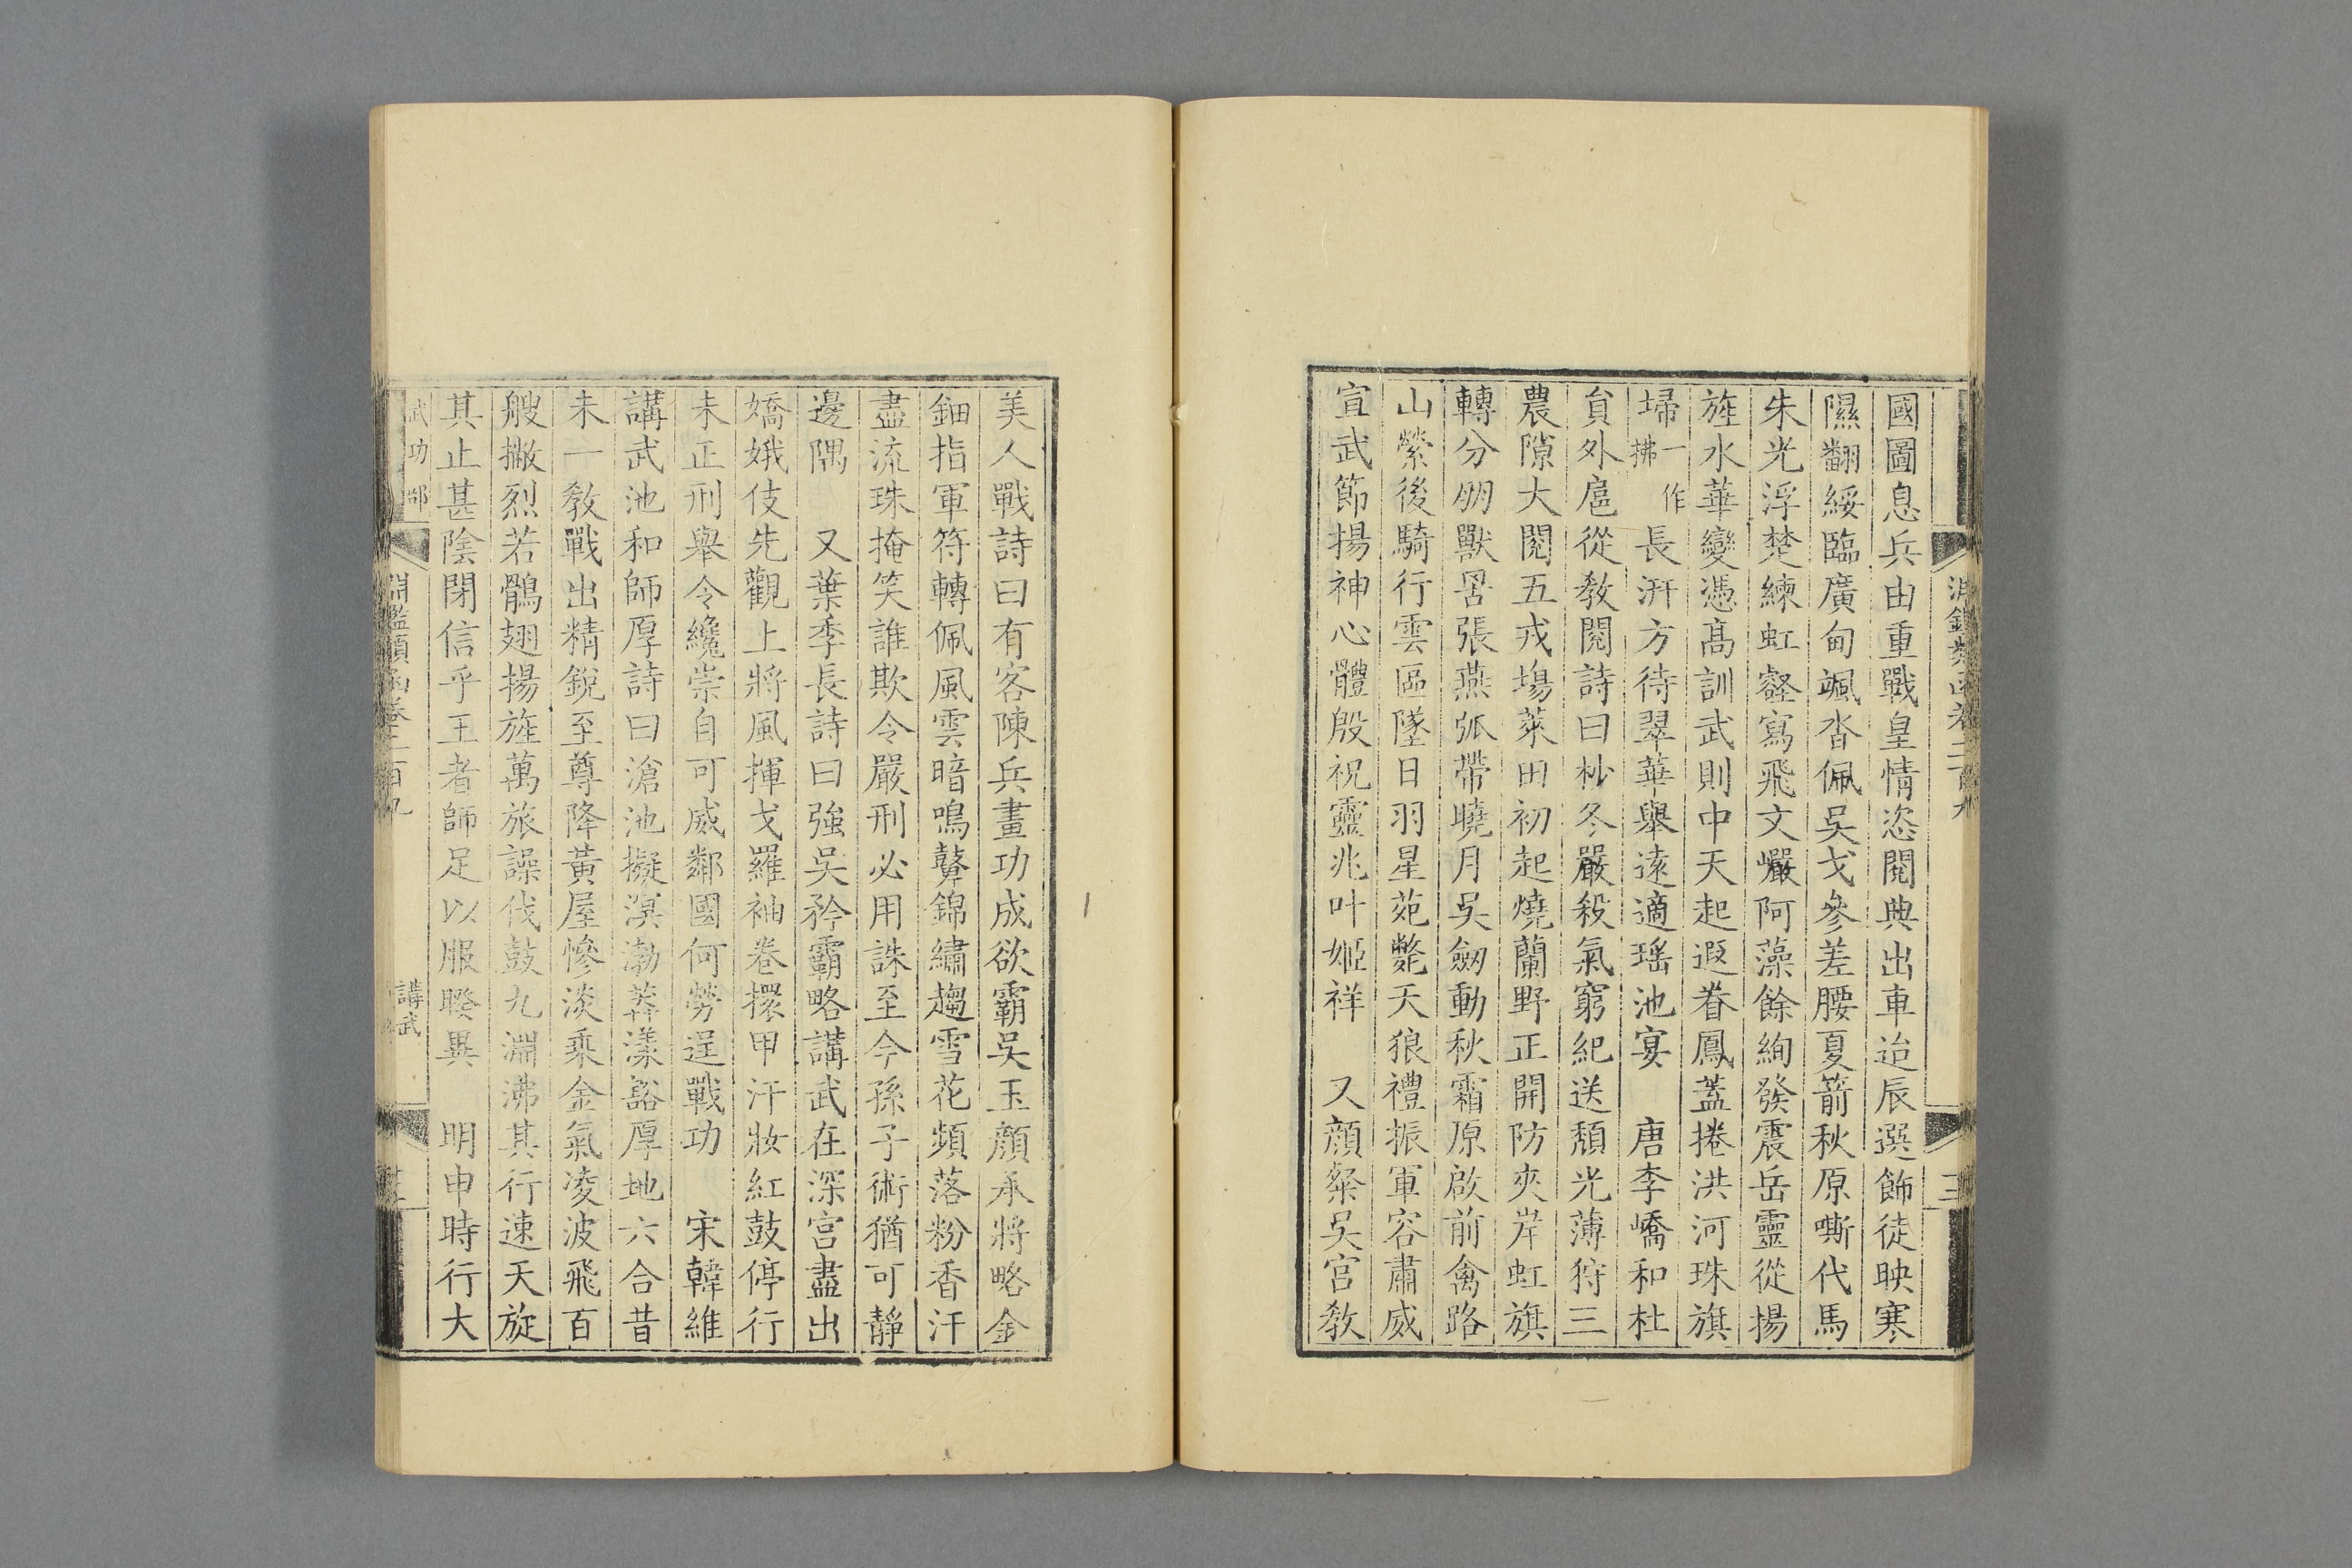 國圖息兵由重戰皇情恣閱典出車迨辰選飾徒映寒
隰翻綏臨廣甸颯沓佩吳戈參差腰夏箭秋原嘶代馬
朱光浮楚練虹壑寫飛文巗阿藻餘絢發震岳靈從揚
旌水華變憑髙訓武則中天起遐眷鳳蓋捲洪河珠旗
埽一作拂長汧方待翠華舉逺適瑶池宴　唐李嶠和杜
員外扈從教閱詩曰杪冬嚴殺氣窮紀送頽光薄狩三
農隙大閱五戎塲萊田初起燒蘭野正開防夾岸虹旗
轉分朙獸罟張燕弧帶曉月吳劒動秋霜原啟前禽路
山縈後騎行雲區墜日羽星苑斃天狼禮振軍容肅威
宣武節揚神心體殷祝靈兆叶姬祥　又顔粲吳宫教
美人戰詩曰有客陳兵畫功成欲霸吳玉顔承將略金
鈿指軍符轉佩風雲暗鳴鼙錦繡趨雪花頻落粉香汗
盡流珠掩笑誰欺令嚴刑必用誅至今孫子術猶可靜
邊隅　又葉季長詩曰強吳矜霸略講武在深宫盡出
嬌娥伎先觀上將風揮戈羅袖卷擐甲汗妝紅鼓停行
未正刑舉令纔崇自可威鄰國何勞逞戰功　宋韓維
講武池和師厚詩曰滄池擬溟渤莽漾豁厚地六合昔
未一教戰出精銳至尊降黃屋慘淡乘金氣凌波飛百
艘撇烈若鶻翅揚旌萬旅譟伐鼓九淵沸其行速天旋
其止甚陰閉信乎王者師足以服睽異　明申時行大
武功部
淵鑑類函卷二百九
講武